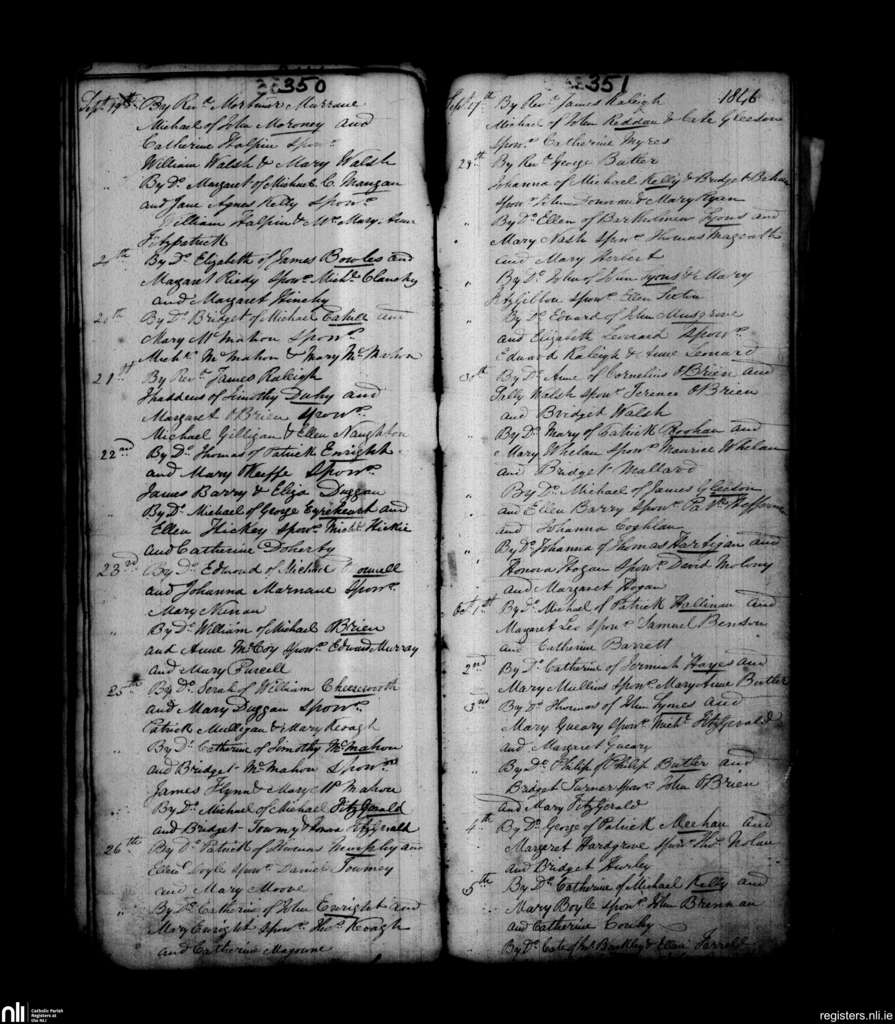 350
Sept 19th By Revd. Mortimer
Michael of John Moroney and
Catherine Halpin Sponrs.
William Walsh & Mary Walsh
" By Do. Margaret of Michael C. Mangan
and Jane Agnes Kelly Sponrs.
William Halpin & Mrs. Mary Anne
Fitzpatrick
20th By Do. Elizabeth of James Bowles and
Margaret Sponrs. Michl. Clanchy
and Margaret Hinchy
20th By Do. Bridget of Michael Cahill and
Mary McMahon Sponrs.
Michl. McMahon & Mary McMahon
21st By Revd. James Raleigh
Thaddeus of Timothy Duhy and
Margaret O'Brien Sponrs.
Michael Gilligan & Ellen Naughton
22nd By Do. Thomas of Patrick Enright
and Mary Keeffe Sponrs.
James Barry & Eliza Duggan
" By Do. Michael of George and
Ellen Hickey Sponrs. Michl. Hickie
and Catherine Doherty
23rd By Do. Edmond of Michael
and Johanna Marnane Sponrs.
Mary
" By Do. William of Michael OBrien
and Anne McCoy Sponrs. Edward Murray
and Mary Purcell
25th By Do. Serah of William
and Mary Duggan Sponrs.
Patrick Mulligan & Mary Keogh
" By Do. Catherine of Timothy McMahon
and Bridget McMahon Sponrs.
James Flynn & Mary McMahon
" By Do. Michael of Michael FitzGerald
and Bridget FitzGerald
26th By Do. Patrick of Thomas Murphy and
Ellen Doyle Sponrs. Daniel Toomey
and Mary Moore
" By Do. Catherine of John Enright and
Mary Enright Sponrs. Thos. Keogh
and Catherine
351
1846
Sept. 27th By Revd. James Raleigh
Michael of John Reddan & Cate Gleeson
Sponr. Catherine Myres
29th By Revd. George Butler
Johanna of Michael Kelly & Bridget
Sponrs. John & Mary Ryan
" By Do. Ellen of Bartholomew Lyons and
Mary Nash Sponrs. Thomas Magrath
and Mary Herbert
" By Do. John of John Lyons & Mary
FitzGibbon Sponr. Ellen Sexton
" By Do. Edward of John Musgrave
and Elizabeth Leonard Sponrs.
Edward Raleigh & Anne Leonard
30th By Do. Anne of Cornelius O'Brien and
Walsh Sponrs. Terence O'Brien
and Bridget Walsh
" By Do. Mary of Patrick and
Mary Whelan Sponrs. Maurice Whelan
and Bridget Mallard
" By Do. Michael of James Gleeson
and Ellen Barry Sponrs.
and Johanna Coghlan
" By Do. Johanna of Thomas Hartigan and
Honora Hogan Sponrs. David Molony
and Margaret Hogan
Oct. 1st By Do. Michael of Patrick Hallinan and
Margaret Lee Sponrs. Samuel Benson
and Catherine Barrett
2nd By Do. Catherine of Jermiah Hayes and
Mary Mullins Sponr. Mary Anne Butler
3rd By Do. Thomas of John Lynes and
Mary Gueary Sponrs. Michl. FitzGerald
and Margaret Gueary
" By Do. Philip of Philip Butler and
Bridget Turner Sponrs. John O'Brien
and Mary FitzGerald
4th By Do. George of Patrick Meehan and
Margaret Hardgrove Sponrs. Thos. Nolan
and Bridget Hurley
5th By Do. Catherine of Michael Kelly and
Mary Boyle Sponrs. John Brennan
and Catherine
By Do. Cate of & Ellen Farrell
nli Catholic Parish
Registers at
the NLI
registers.nli.ie